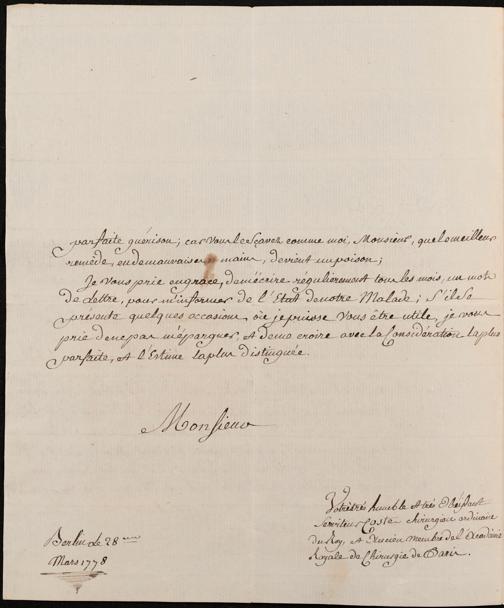 parfaite guérison; car vous le sçavez comme moi, Monsieur, que le meilleur
remède, en de mauvaises mains, devient un poison;
Je vous prie en grace, de m'écrire régulièrement tous les mois, un mot
de Lettre, pour m'informer de l'Etat de notre Malade; S'il se
présente quelques occasions, où je puisse vous être utile, je vous
prie de ne pas m'épargner, et de me croire avec la Considération la plus
parfaite, et l'Estime la plus distinguée.
Monsieur
Votre très humble et très Obéissant
Serviteur Coste chirurgien ordinaire
du Roy, et Ancien membre de l'Académie
Royale de Chirurgie de Paris.
Berlin Le 28
Mars 1778